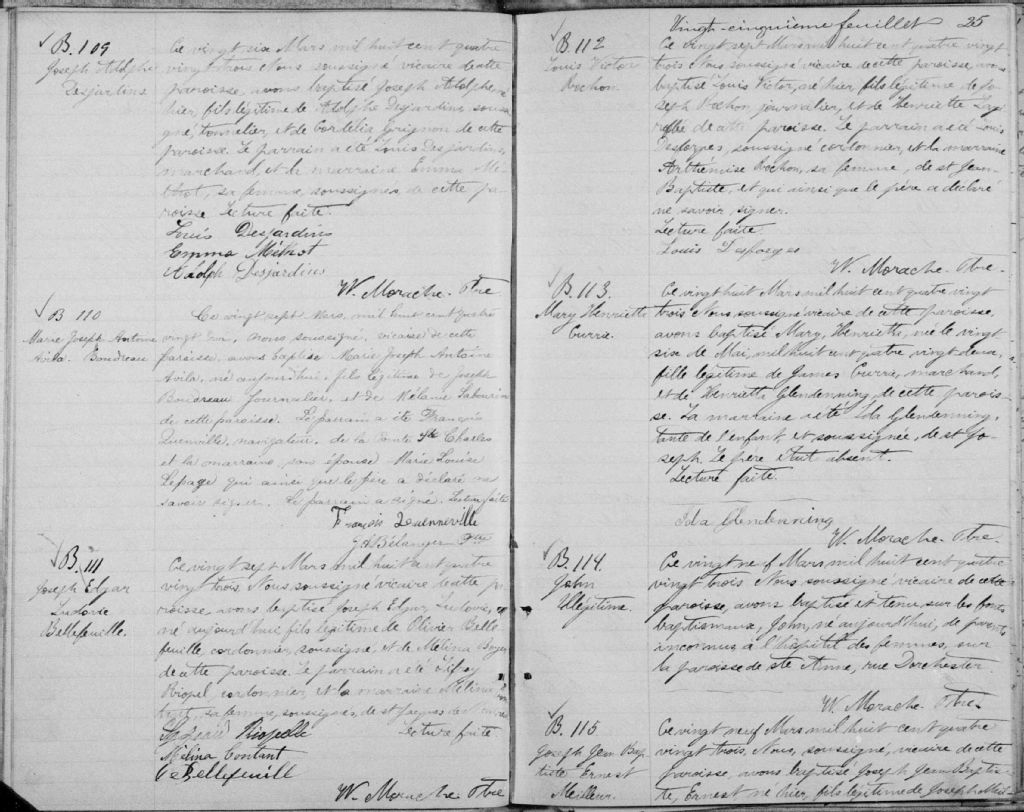 B. 109
Joseph Adolphe
Desjardins
Ce vingt six Mars mil huit cent quatre
vingt trois Nous soussigné vicaire de cette
paroisse, avons baptisé Joseph Adolphe, né
hier, fils légitime de Adolphe Desjardins soussi-
gné, tonnelier, et de Cordélia Grignon de cette
paroisse. Le parrain a été Louis Desjardins,
marchand, et la marraine Emma
sa femme soussignés de cette pa-
roisse Lecture faite.
Louis Desjardins
Emma
Adolph Desjardins
W. Morache Ptre
B 110
Marie Joseph Antoine
Avila Boudreau
Ce vingt sept Mars, mil huit cent quatre
vingt trois, nous, soussigné, vicaire de cette
paroisse, avons baptisé Marie Joseph Antoine
Avila, né aujourd'hui, fils légitime de Joseph
Boudreau journalier, et de Mélanie Labourin
de cette paroisse. Le parrain a été François
Quenville, navigateur, de la Pointe St Charles
et la marraine, son épouse Marie Louise
Lepage qui ainsi que le père a déclaré ne
savoir signer. Le parrain a signé. Lecture faite
François Quenneville
Bélanger Ptre
B. 111
Joseph Edgar
Ludovic
Bellefeuille.
Ce vingt sept Mars mil huit cent quatre
vingt trois, Nous soussigné vicaire de cette pa-
roisse, avons baptisé Joseph Edgar Ludovic,
né aujourd'hui fils légitime de Olivier Belle
feuille cordonnier, soussigné et de Mélina Boyer
de cette paroisse. Le parrain a été
Riopel, cordonnier, et la marraine Mélina
sa femme, soussignés, de st Jacques
Riopelle Lecture faite.
Mélina Contant
O Bellefeuill
W. Morache Ptre
Vingt-cinquième feuillet 25
B. 112
Louis Victor
Rochon.
Ce vingt sept Mars mil huit cent quatre vingt
trois Nous soussigné vicaire de cette paroisse, avons
baptisé Louis Victor, né hier fils légitime de Jo-
seph Rochon, journalier, et de Henriette
de cette paroisse. Le parrain a été Louis
Desforges, soussigné cordonnier, et la marraine
Arthémise Rochon, sa femme, de st Jean-
Baptiste, et qui ainsi que le père a déclaré
ne savoir signer.
Lecture faite.
Louis Desforges
W. Morache Ptre.
B. 113.
Mary Henriette
Currie.
Ce vingt huit Mars mil huit cent quatre vingt
trois Nous soussigné vicaire de cette paroisse,
avons baptisé Mary, Henrietta, née le vingt
six de Mai, mil huit cent quatre vingt deux,
fille légitime de James Currie, marchand,
et de Henrietta Glendenning, de cette parois-
se. La marraine a été Ida Glendenning,
tante de l'enfant et soussignée, de st Jo-
seph Le père était absent.
Lecture faite.
Ida Glendenning
W. Morache Ptre.
B. 114.
John
Illégitime.
Ce vingt neuf Mars mil huit cent quatre
vingt trois Nous soussigné vicaire de cette
paroisse, avons baptisé et tenu sur les fonts
baptismaux, John, né aujourd'hui, de parents
inconnus à l'hôpital des femmes, sur
la paroisse de Ste Anne, rue Dorchester
W. Morache Ptre.
B. 115
Joseph Jean Bap
tiste Ernest
Meilleur.
Ce vingt neuf Mars mil huit cent quatre
vingt trois, Nous, soussigné, vicaire de cette
paroisse, avons baptisé Joseph Jean Baptis-
te, Ernest né hier, fils légitime de Joseph Meil-